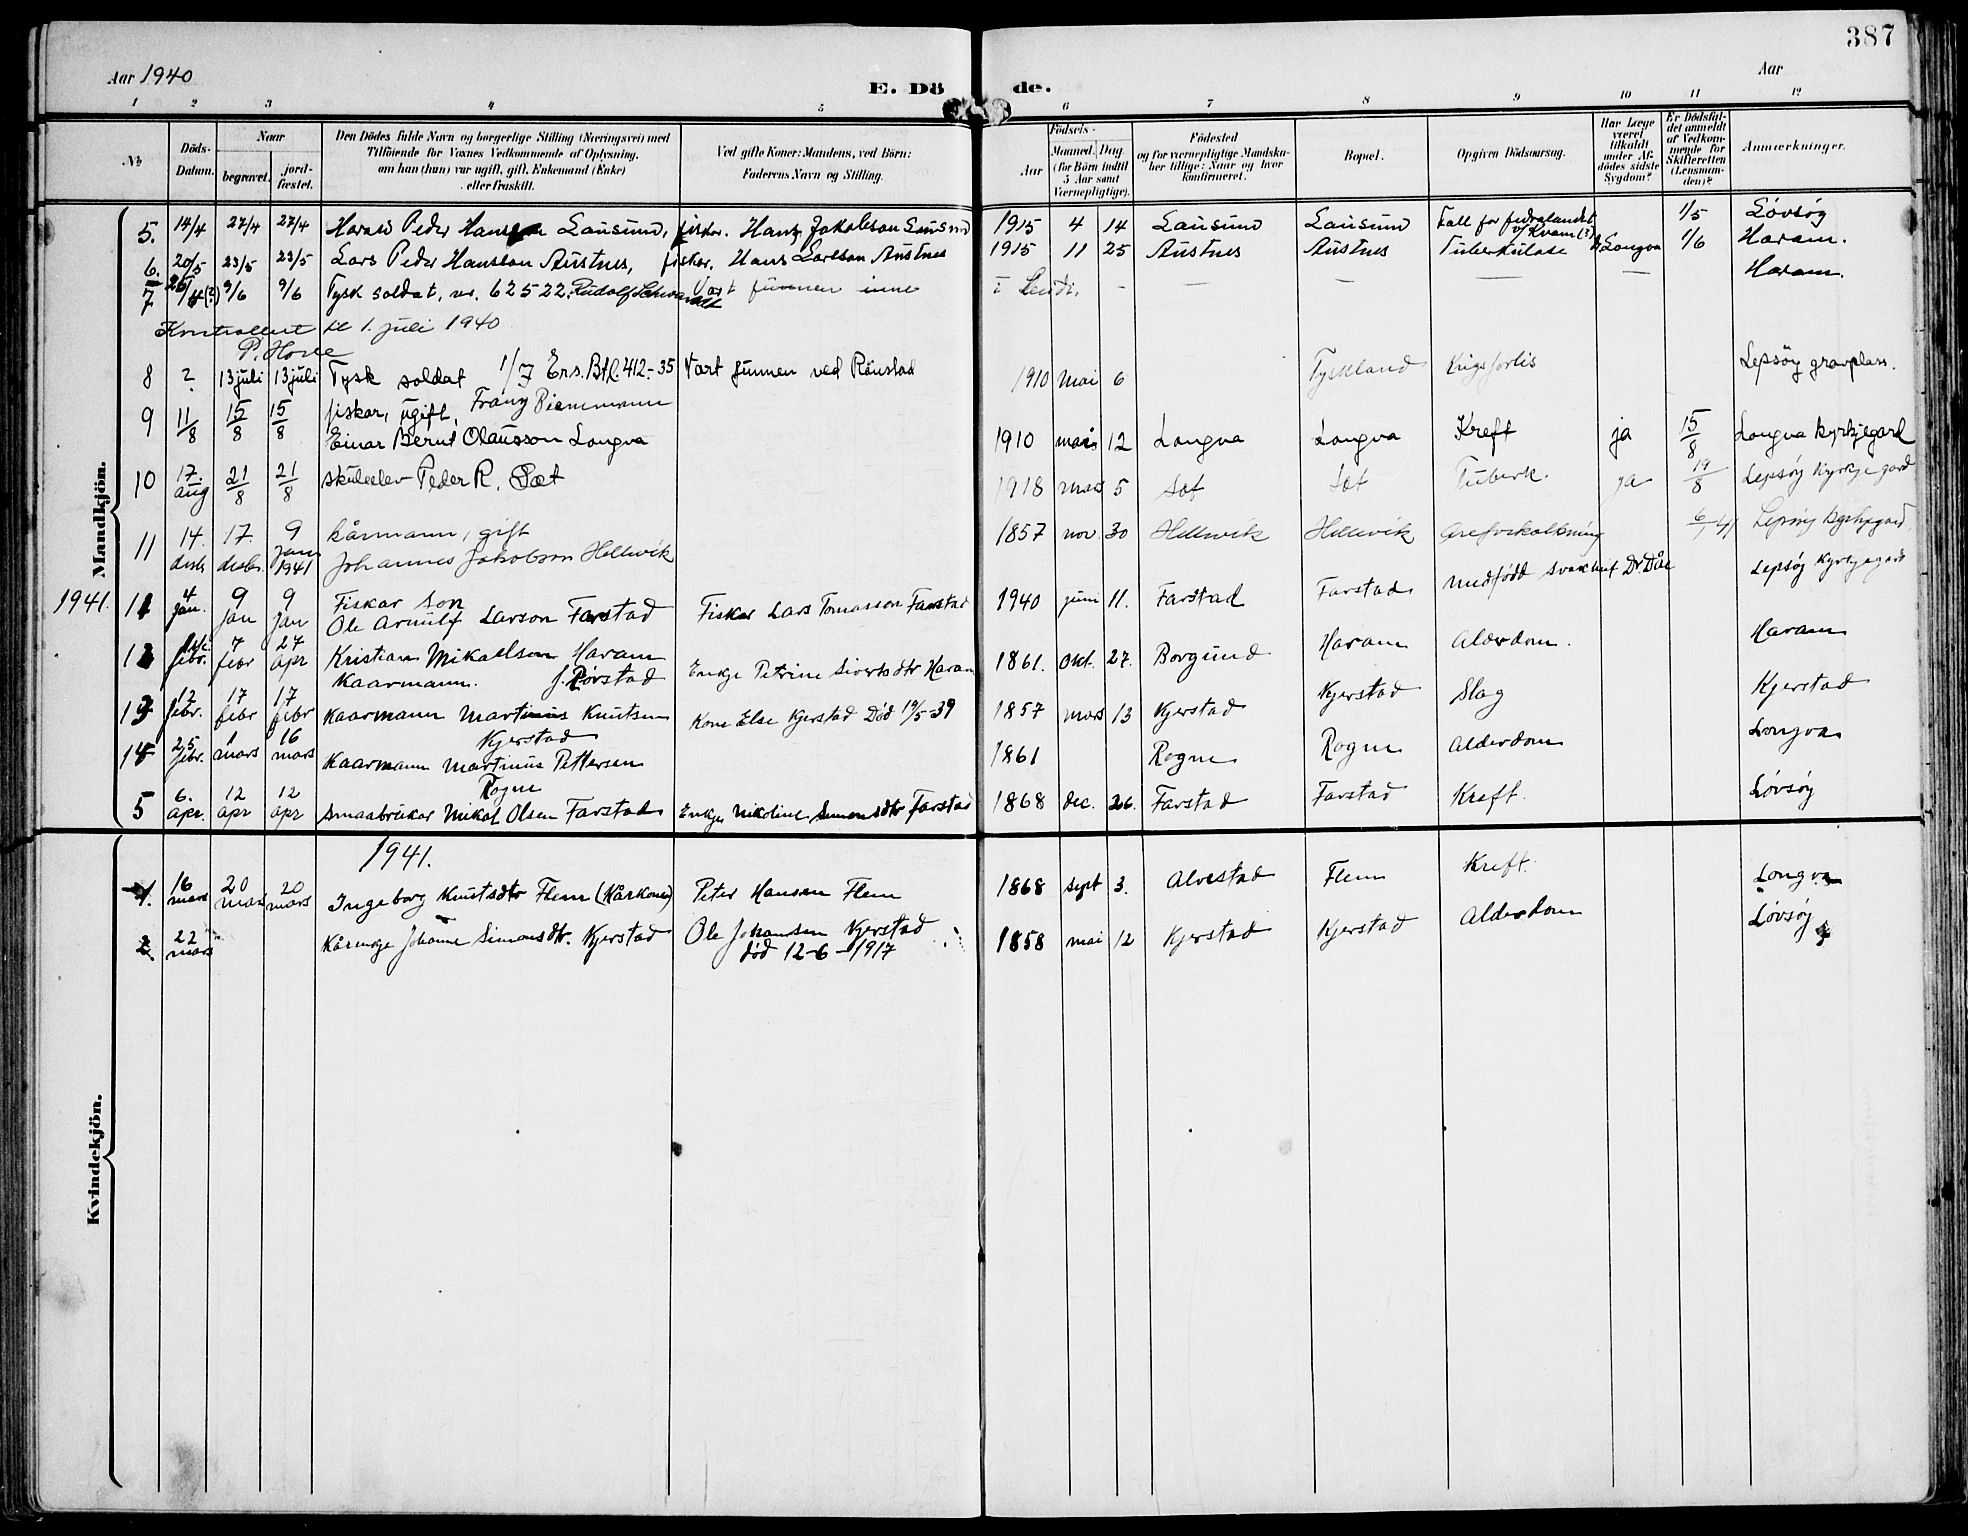 387
Aar 1940
E. Dö de.
Aar
1 2 3 4 5 6 7 8 9 10 11 12
No
Döds-Datum.
Naar
begravet.
jord-fæstet.
Den Dödes fulde Navn og borgerlige Stilling (Næringsvei) med
Tilföiende for Voxnes Vedkommende af Oplysning,
om han (hun) var ugift, gift, Enkemand (Enke)
eller fraskilt.
Ved gifte Koner: Mandens, ved Börn:
Faderens Navn og Stilling.
Födsels-
Aar
Maaned. Dag.
(for Börn indtil
5 Aar samt
Værnepligtige).
Födested
og for værnepligtige Mandska-
ber tillige: Naar og hvor
konfirmeret.
Bopæl.
Opgiven Dödsaarsag.
Har Læge
været
tilkaldt
under Af-
dödes sidste
Sygdom?
Er Dödsfal-
det anmeldt
af Vedkom-
mende for
Skifteretten
(Lensman-
den)?
Anmærkninger.
Mandkjön.
5. 14/4 27/4 27/4 Harald Peder Hansen Lausund, fiskar. Hans Jakobson Lausund 1915 4 14 Lausund Lausund Fall for fedralandet v/Kvam(?) 1/5 Lövsöy
6. 20/5 23/5 23/5 Lars Peder Hansson Austnes, fiskar. Hans Larsson Austnes 1915 11 25 Austnes Austnes Tuberkulose Dr. Longva 1/6 Haram.
7 26/4(?) 9/6 9/6 Tysk soldat, nr. 62522. Rudolf Schwandt Vart funnen inne i Lendi. - — — — Haram.
Kontrollert til 1. juli 1940
P. Hove
8 ? 13 juli 13 juli Tysk soldat 1/7 Ers. Btl. 412.-35 Vart funnen ved Rönstad 1910 mai 6 Tyskland Krigsforlis Lepsöy gravplass.
Franz Bienemann
9 11/8 15/8 15/8 fiskar, ugift,
Einar Bernt Olausson Longva 1910 mars 12 Longva Longva Kreft ja 15/8 Longva kyrkjegard
10 17. aug 21/8 21/8 skuleelev Peder R. Sæt 1918 mars 5 Sæt Sæt Tuberk. ja 19/8 Lepsöy kyrkjegard
11 14. desbr 17. desbr. 9 jan 1941 kårmann, gift
Johannes Jakobson Hellevik 1857 nov. 30 Hellevik Hellevik Areforkalkning 6/1 41 Lepsöy kyrkjegard
1941. 1 4 jan. 9 jan 9 jan Fiskar son
Ole Arnulf Larson Farstad Fiskar Lars Tomasson Farstad 1940 juni 11. Farstad Farstad medfödd svakhet Dr. Dåe Lepsöy kyrkjegard
2 febr. 7 febr 27 apr Kristian Mikaelson Haram
Kaarmann. f. Rörstad Enkje Petrine Sivertsdtr Haram 1861. Okt. 27. Borgund Haram Alderdom. Haram
3 12 febr. 17 febr 17 febr Kaarmann Martinus Knutsen
Kjerstad Kone Else Kjerstad Död 19/5-39 1857 mars 13 Kjerstad Kjerstad Slag Kjerstad
4 25 febr. 1 mars 16 mars Kaarmann Martinus Pettersen
Rogne 1861 Rogne Rogne Alderdom Longva
5 6. apr. 12 apr 12 apr Smaabrukar Mikal Olsen Farstad Enkje Nikoline Simensdtr Farstad 1868 dec. 26. Farstad Farstad Kreft. Lövsöy
Kvindekjön.
1941.
1. 16 mars 20 mars 20 mars Ingeborg Knutsdtr Flem (Kårkone) Peter Hansen Flem 1868 sept 3. Alvestad Flem Kreft. Longva
2. 22 mars Kårenkje Johanne Simonsdtr. Kjerstad Ole Johansen Kjerstad
död 12-6-1917 1858 mai 12 Kjerstad Kjerstad Alderdom Lövsöy